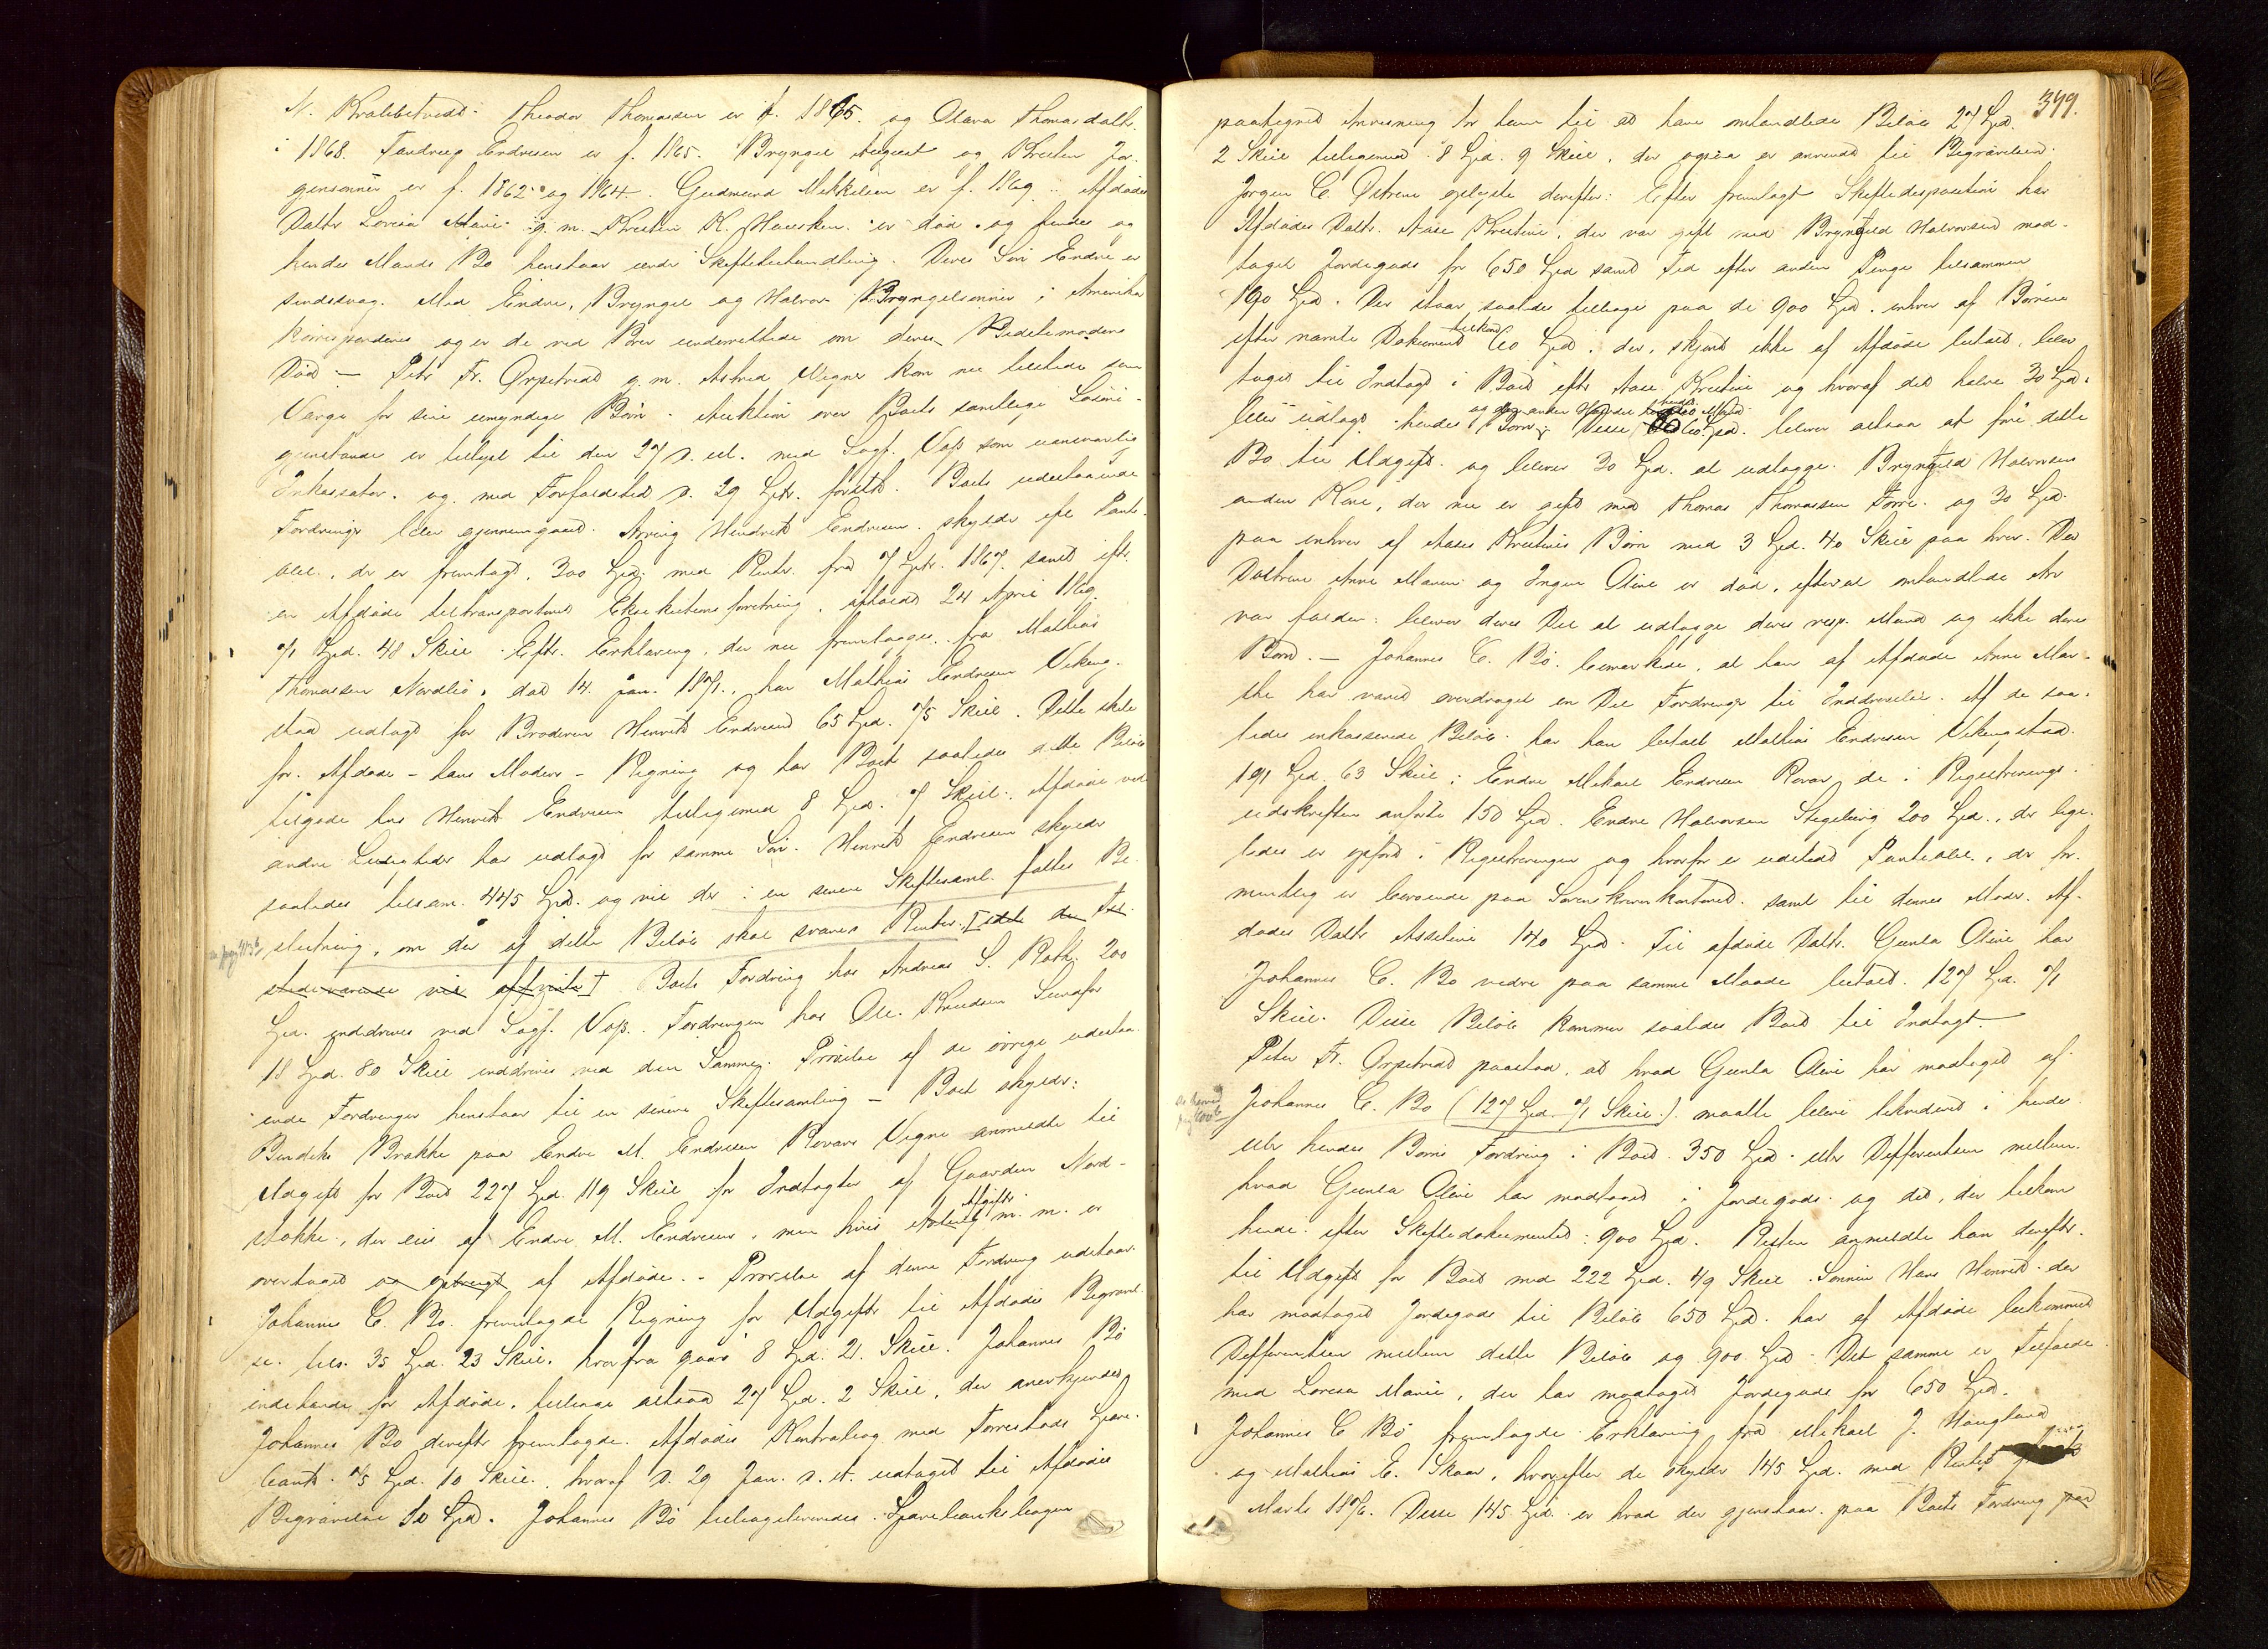 N. Krabbetveit. Theodor Thomassen er f. 1865. og Olava Thomasdatt.
i 1868. Endresen er f. 1865. Bryngel August og Kristen Jør-
gensønner er f. 1862 og 1864. Gudmund Mikkelsen er f. 1869. Afdødes
Datter Lovisa Marie g. m. Kristen K. er død og hendes og
hendes Mands Bo henstaar under Skiftebehandling. Deres Søn Endre er
sindssvag. Med Endre, Bryngel og Halvor Bryngelsønner i Amerika
korresponderes og er de ved Brev underrettede om deres Bedstemoders
Død — Peter Fr. Ørpetvedt g. m. Astrid Vigner kom nu tilstede som
Værge for sine umyndige Børn. Auktion over Boets samtlige Løsøre-
gjenstande er tillyst til den 27 d. M. med Sagf. Voss som ansvarlig
Inkassator. og med Forfaldstid d. 29 Septr. førstk. Boets udestaaende
Fordringer blev gjennemgaaet. Henrik Endresen skylder efter Pante-
obl., der er fremlagt, 300 Spd. med Renter fra 7 Septr. 1867. samt iflg.
en Afdøde tiltransporteret Eksekutionsforretning, afholdt 24 April 1869.
71 Spd. 48 Skill. Efter Erklæring, der nu fremlagges fra Mathias
Thomassen Nordbø, dat 14. Jan. 1871., har Mathias Endresen Viking-
stad udlagt for Broderen Henrik Endresen 65 Spd. 75 Skill. Dette skede
for Afdøde – hans Moders – Regning og har Boet saaledes dette Beløb
tilgode hos Henrik Endresen tilligemed 8 Spd. 7 Skill. Afdøde ved
andre Leiligheder har udlagt for samme Søn. Henrik Endresen skylder
saaledes tilsam. 445 Spd. og vil der i en senere Skiftesaml. fattes Be-
slutning, om der af dette Beløb skal svares Renter.
Boets Fordring hos Andreas S. Roth. 200
Spd. inddrives ved Sagf. Voss. Fordringen hos Ole Knudsen
18 Spd. 80 Skill inddrives ved den Samme. Prøvelse af de øvrige udestaa-
ende Fordringer henstaar til en senere Skiftesamling — Boet skylder:
Bendik Brakke paa Endre M. Endresen Røvars Vegne anmeldte til
Udgift for Boet 227 Spd. 119 Skill for Indtægter af Gaarden Nord-
stokke, der eies af Endre M. Endresen, men hvis Afgifter m. m. er
overtaget af Afdøde. - Prøvelse af denne Fordring udstaar.
Johannes C. Bø fremlagde Regning for Udgifter til Afdødes Begravel-
se. tils. 35 Spd. 23 Skill. hvorfra gaar 8 Spd. 21. Skill. Johannes Bø
indehavde for Afdøde. tilbage altsaa 27 Spd. 2 Skill, der anerkjendes
Johannes Bø derefter fremlagde Afdødes Kontrabog med Torvestads Spare-
bank 75 Spd. 10 Skill. hvoraf d. 29 Jan. d. A. udtaget til Afdødes
Begravelse 50 Spd. Johannes Bø tilbageleveredes Sparebanksbogen
399.
paategnet Anvisning for ham til at hæve omhandlede Beløb 27 Spd.
2 Skill tilligemed 8 Spd. 9 Skill, der ogsaa er anvendt til Begravelsen.
Jørgen C. Østrem oplyste derefter: Efter fremlagt Skiftedisposition har
Afdødes Datter Aase Kristine, der var gift med Bryngel Halvorsen mod-
taget Jordegods for 650 Spd samt Tid efter anden Penge tilsammen
190 Spd. Der staar saaledes tilbage paa de 900 Spd. enhver af Børnene
efter nævnte Dokument tilkom 60 Spd. der, skjønt ikke af Afdøde betalt, blev
taget til Indtægt i Boet efter Aase Kristine og hvoraf det halve 30 Spd.
blev udlagt hendes Børn og den anden Halvdel hendes Mand. Disse 60 Spd. bliver altsaa at føre dette
Bo til Udgift og bliver 30 Spd. at udlægge Bryngel Halvorsens
anden Kone, der nu er gift med Thomas Thomassen og 30 Spd.
paa enhver af Aases Kristines Børn med 3 Spd. 40 Skill paa hver. Da
Døttrene Anne Maren og Ingen Oline er død, efterat omhandlede Arv
var falden, bliver deres Del at udlægge deres resp. Mænd og ikke deres
Børn. — Johannes C. Bø bemærkede, at han af Afdøde Anne Mar-
the har været overdraget en Del Fordringer til Inddrivelse. Af de saa-
ledes inkasserede Beløb har han betalt Mathias Endresen Vikingstad
191 Spd. 63 Skill: Endre Mikael Endresen Røvær de i Registrerings-
udskriften anførte 150 Spd. Endre Halvorsen 200 Spd., der lige-
ledes er opført i Registreringen og hvorfor er udstedt Panteobl., der for-
mentlig er beroende paa Sorenskriverkontoret. samt til dennes Moder. Af-
dødes Datter Asseline 140 Spd. Til afdøde Datter Gunla Oline har
Johannes C. Bø videre paa samme Maade betalt. 127 Spd. 71
Skill. Disse Beløb kommer saaledes Boet til Indtægt.
Peter Fr. Ørpetvedt paastod, at hvad Gunla Oline har modtaget af
Johannes C. Bø (127 Spd. 71 Skill.) maatte blive likvideret i hendes
eller hendes Børns Fordring i Boet 350 Spd. eller Differentsen mellem
hvad Gunla Oline har modtaget i Jordegods og det, der tilkom
hende efter Skiftedokumentet: 900 Spd. Resten anmeldte han derefter
til Udgift for Boet med 222 Spd. 49 Skill. Sønnen Hans Henrik der
har modtaget Jordegods til Beløb 650 Spd. har af Afdøde bekommet
Differentsen mellem dette Beløb og 900 Spd. Det samme er Tilfælde
med Lovisa Marie, der har modtaget Jordegods for 650 Spd.
Johannes C Bø fremlagde Erklæring fra Mikael J. Haugland
og Mathias E. Skaar, hvorefter de skylder 145 Spd. med Renter fra
Marts 1876. Disse 145 Spd. er hvad der gjenstaar paa Boets Fordring paa